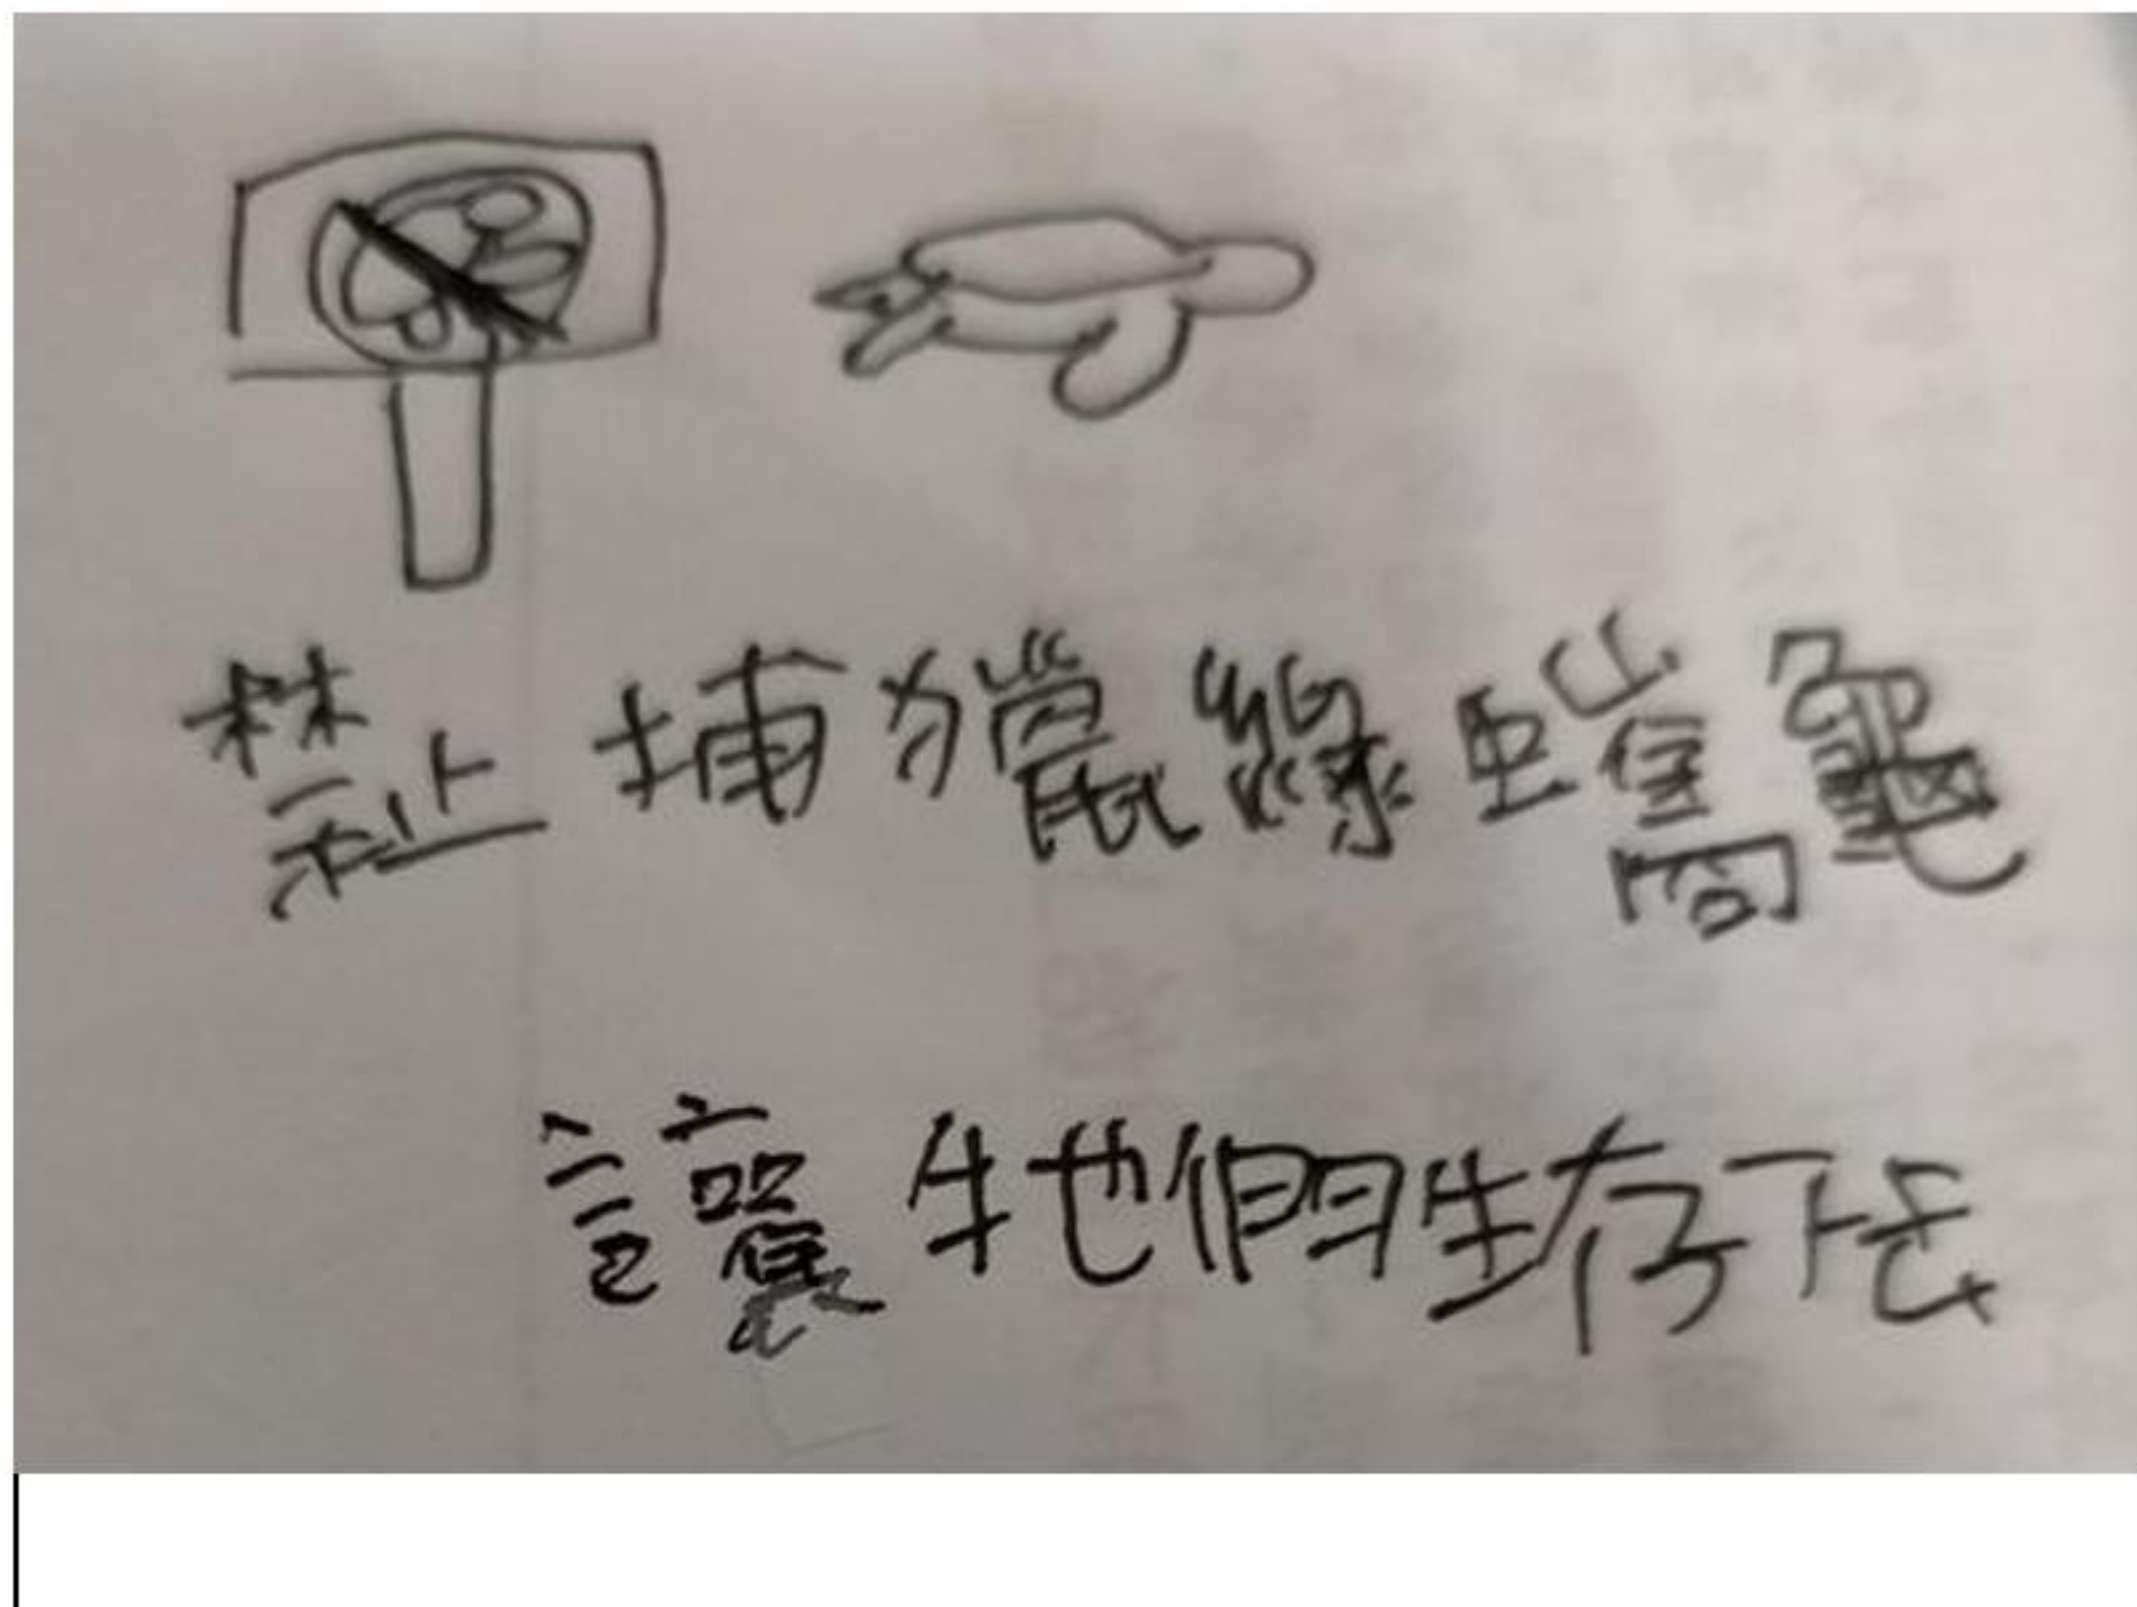 禁止捕獵綠蠵龜
讓牠們生存下去